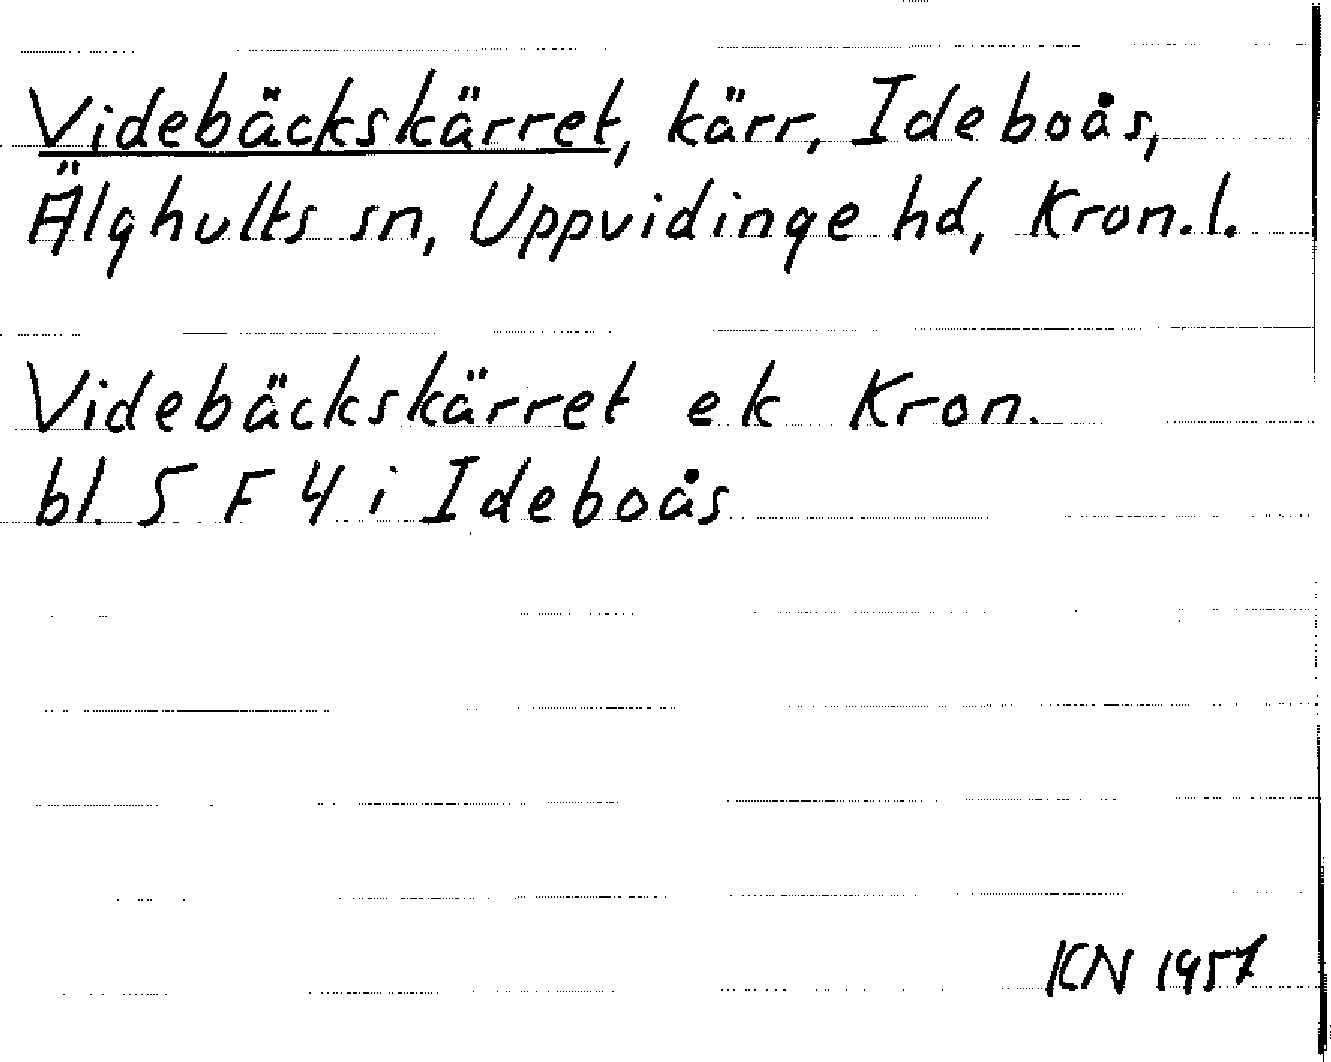 Videbäckskärret, kärr, Ideboås,
Älghults sn, Uppvidinge hd, Kron.l.
Videbäckskärret ek Kron.
bl. 5 F 4 i Ideboås
KN 1957